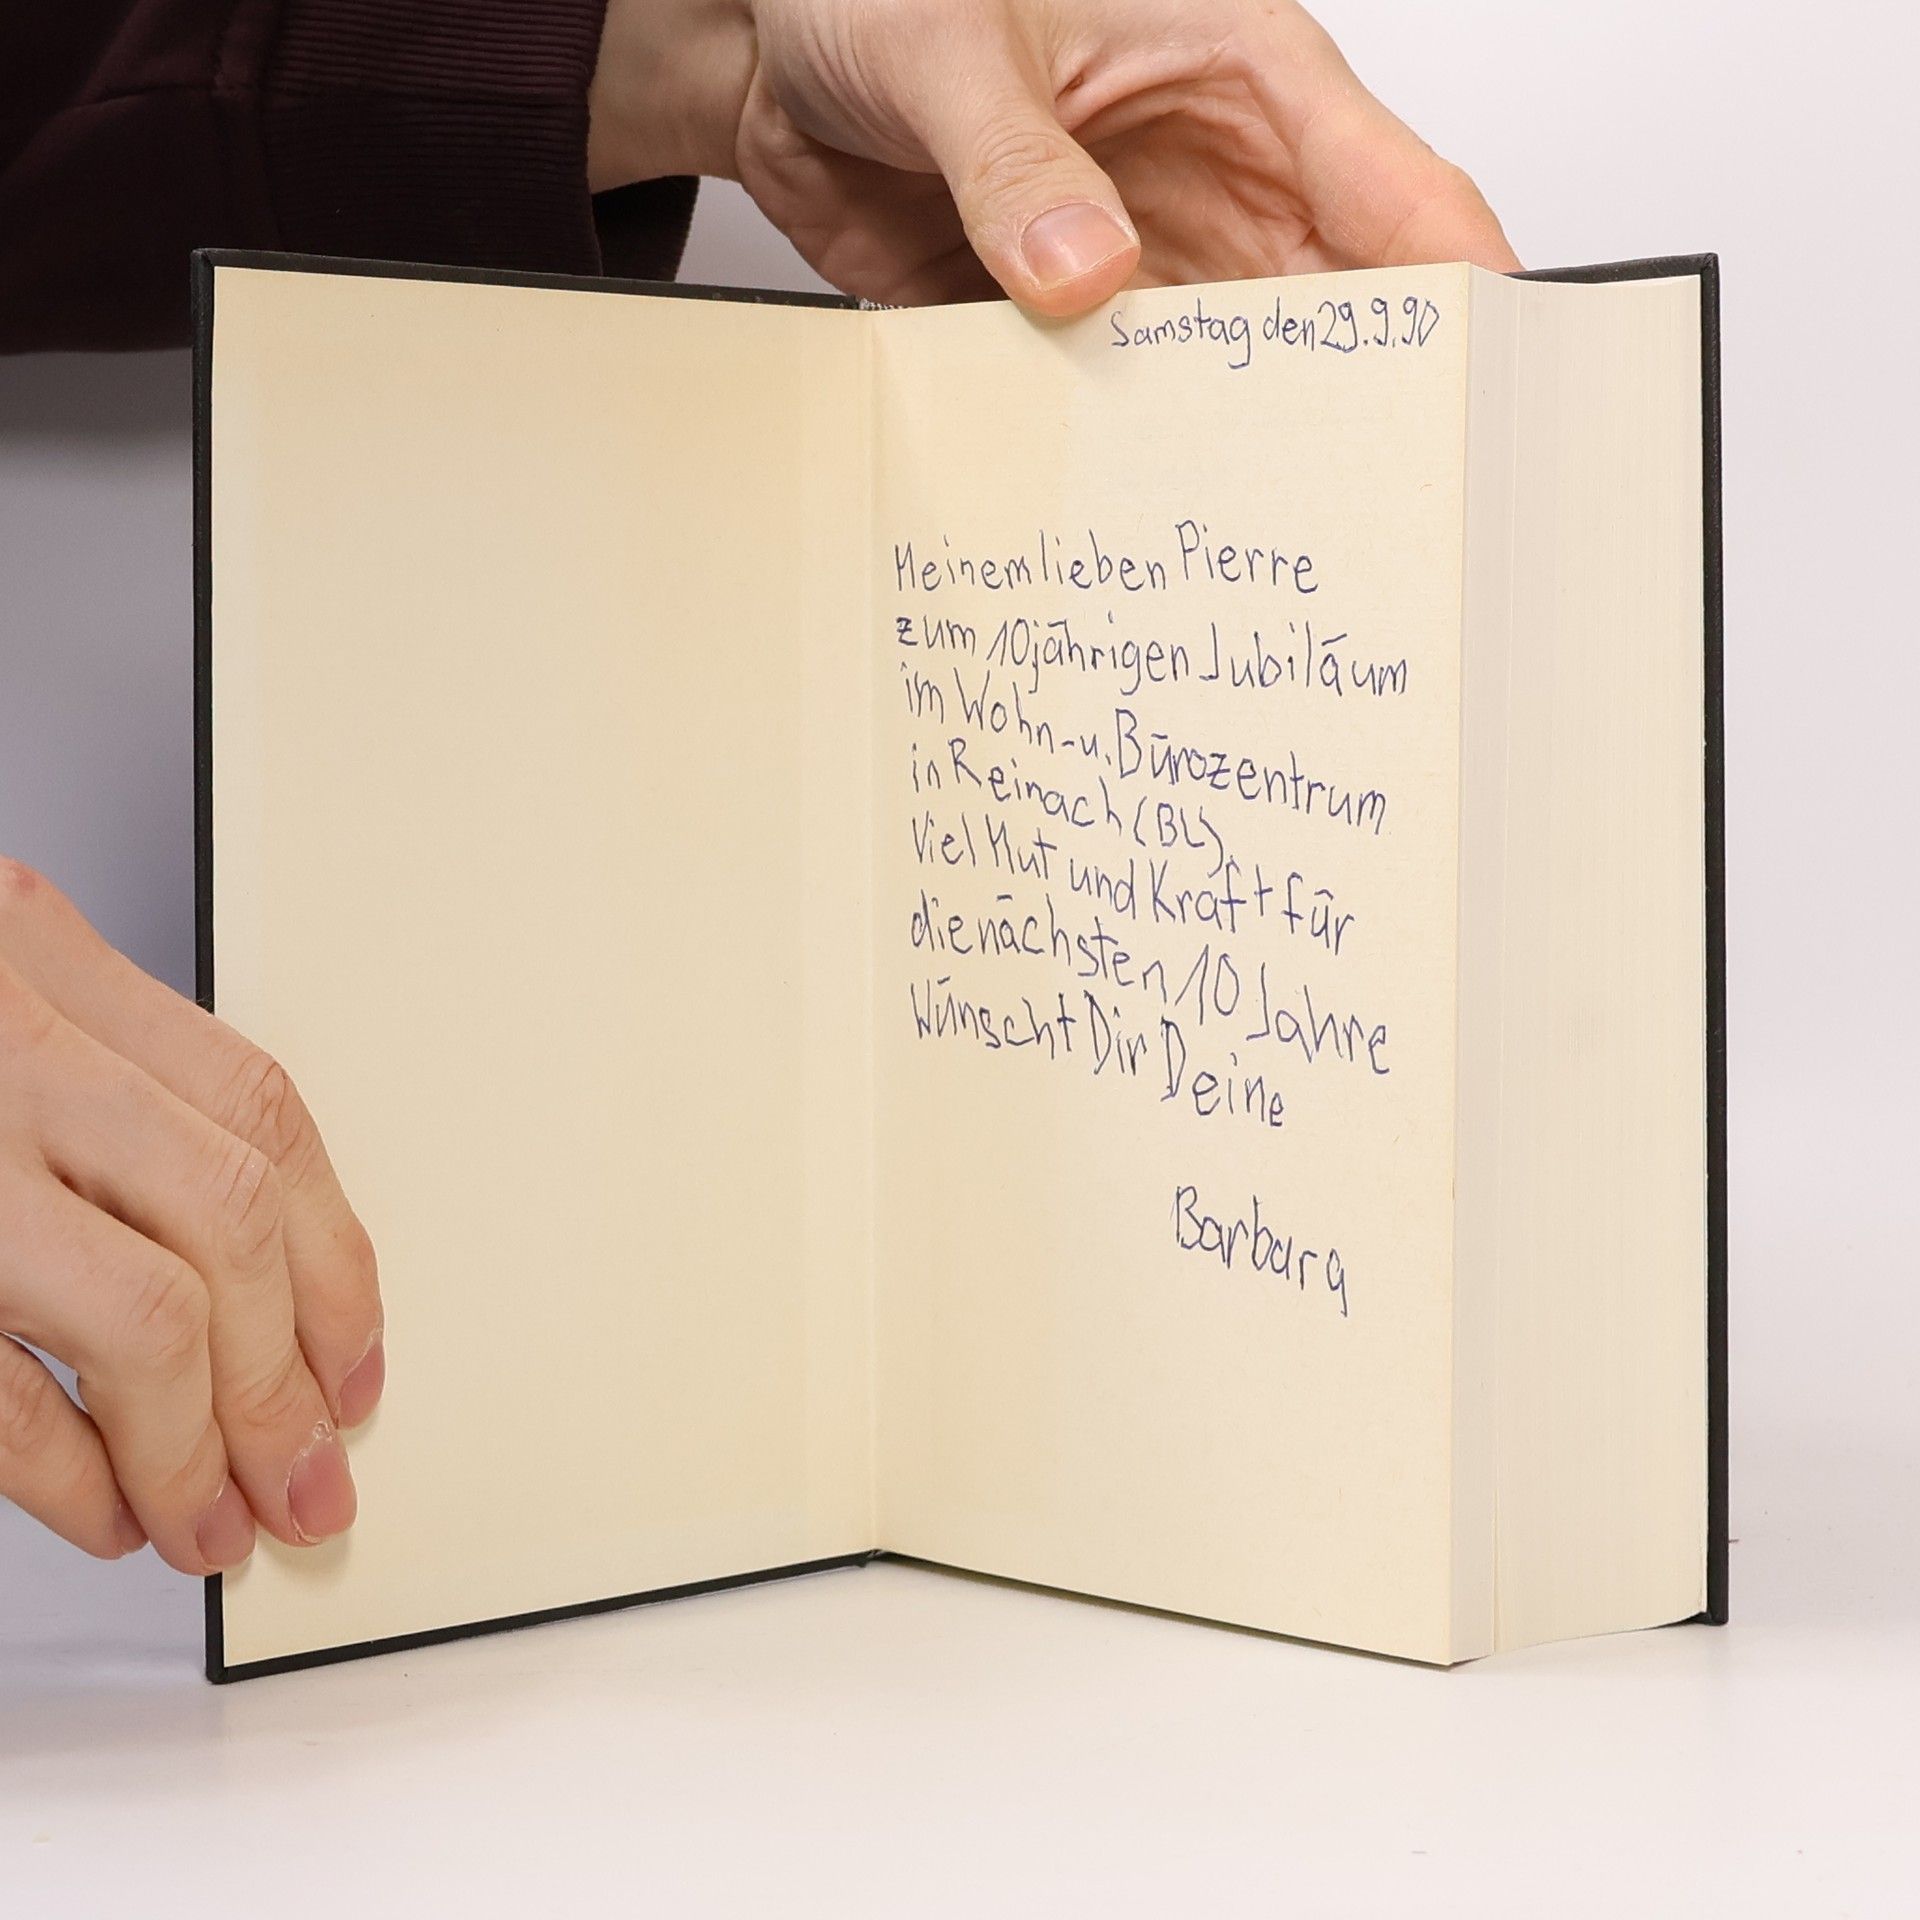 Samstag den 29.9.90
Meinem lieben Pierre
zum 10jährigen Jubiläum
im Wohn-u. Bürozentrum
in Reinach (BL).
Viel Mut und Kraft für
die nächsten 10 Jahre
Wünscht Dir Deine
Barbara